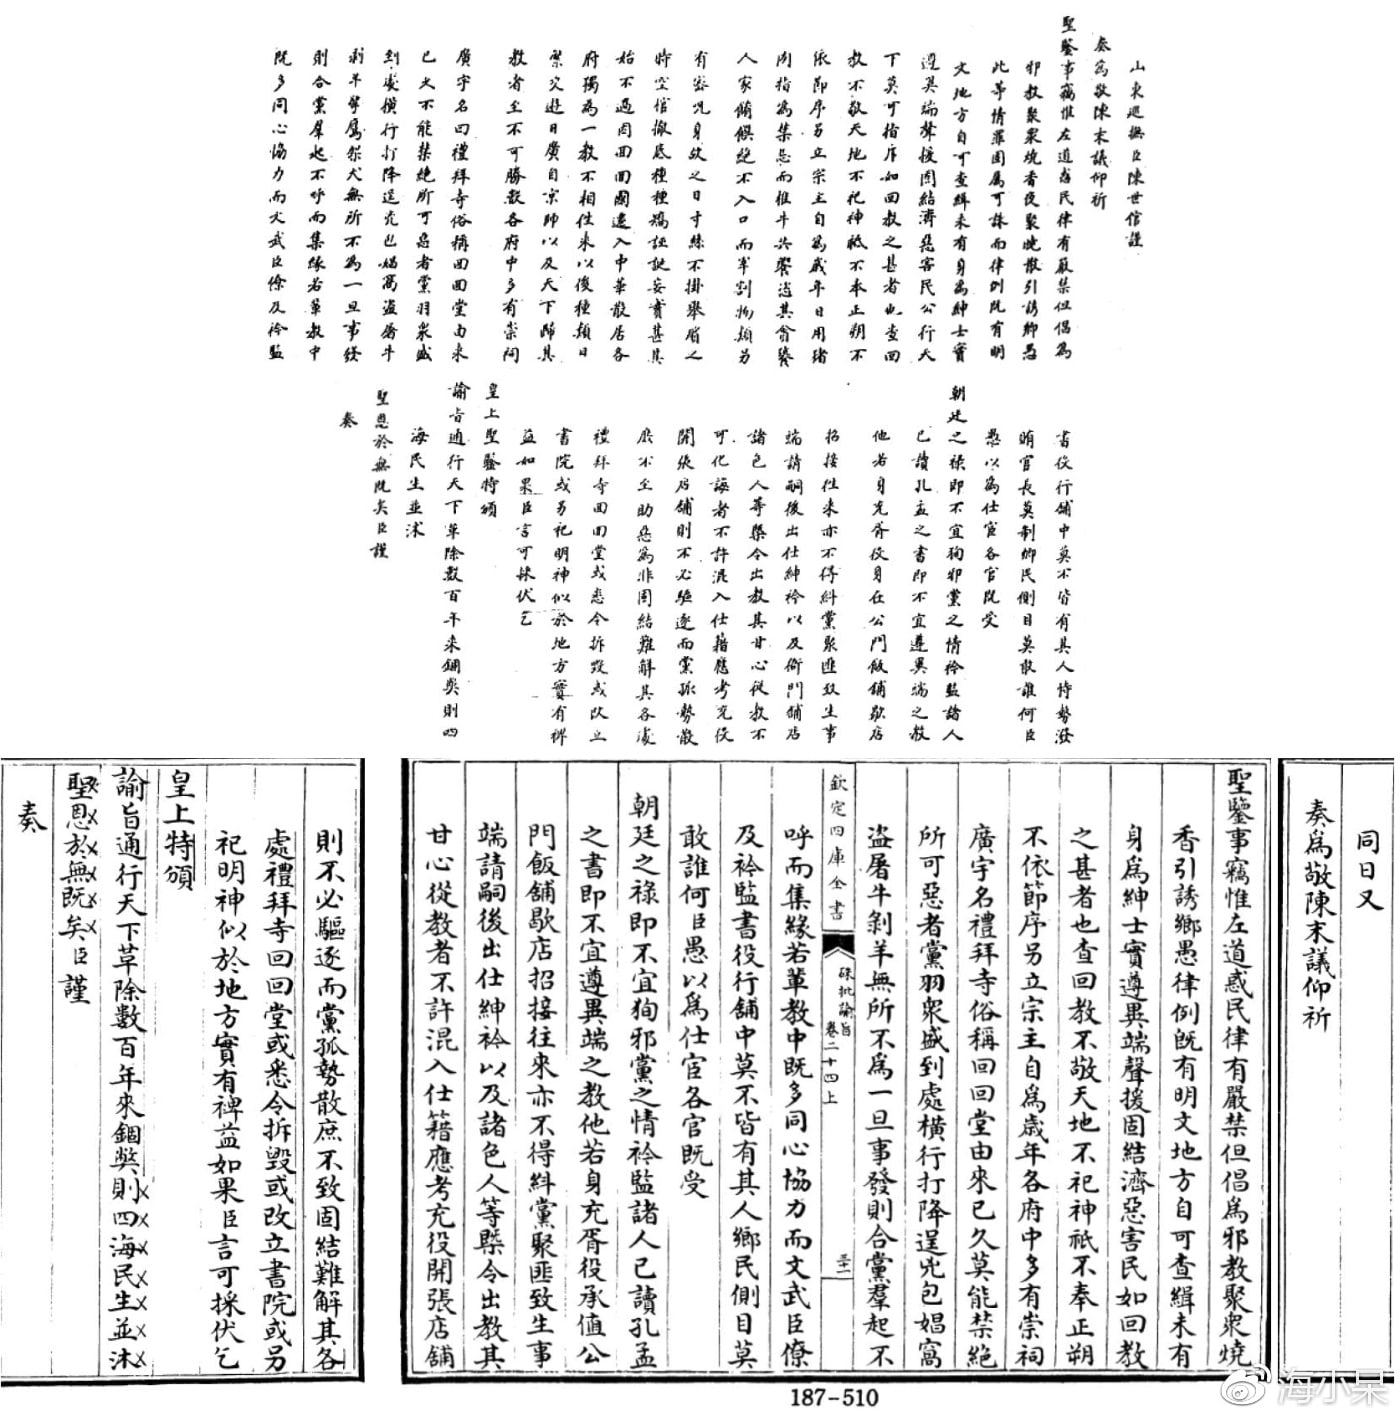 山東巡撫臣陳世倌謹
奏為敬陳末議仰祈
聖鑒事竊惟左道惑民律有嚴禁但倡為
邪教聚衆燒香夜聚曉散引誘鄉愚
此等情罪固屬可誅而律例既有明
文地方自可查緝未有身為紳士實
遵異端聲援固結濟惡害民公行天
下莫可指斥如回教之甚者也查回
教不敬天地不祀神祇不奉正朔不
依節序另立宗主自為歲年日用猪
肉指為禁忌而椎牛共饗恣其貪饕
人家餚饌絕不入口而宰割拘類另
有密咒身歿之日寸絲不掛舉眉之
時空棺撤底種種矯誣誕妄實甚其
始不過因回回國遷入中華散居各
府獨為一教不相往來以後種類日
繁交遊日廣自京師以及天下歸其
教者至不可勝數各府中多有崇祠
廣宇名曰禮拜寺俗稱回回堂由來
已久不能禁絕所可惡者黨羽衆盛
到處橫行打降逞兇包娼窩盜屠牛
剥羊擎鷹架犬無所不為一旦事發
則合黨羣起不呼而集緣若輩教中
既多同心協力而文武臣僚及衿監
書役行舖中莫不皆有其人恃勢潑
賄官長莫制鄉民側目莫敢誰何臣
愚以為仕宦各官既受
朝廷之祿即不宜狥邪黨之情衿監諸人
已讀孔孟之書即不宜遵異端之教
他若身充胥役身在公門飯舖歇店
招接往來亦不得糾黨聚匪致生事
端請嗣後出仕紳衿以及衙門舖店
諸色人等槩令出教其甘心從教不
可化誨者不許混入仕籍應考充役
開張店舖則不必驅逐而黨孤勢散
庶不至助惡為非固結難解其各處
禮拜寺回回堂或悉令拆毀或改立
書院或另祀明神似於地方實有裨
益如果臣言可採伏乞
皇上聖鑒特頒
諭旨通行天下革除數百年來錮獘則四
海民生並沐
聖恩於無既矣臣謹
奏
同日又
奏爲敬陳末議仰祈
聖鑒事竊惟左道惑民律有嚴禁但倡爲邪教聚衆燒
香引誘鄉愚律例既有明文地方自可查緝未有
身爲紳士實遵異端聲援固結濟惡害民如回教
之甚者也查回教不敬天地不祀神祇不奉正朔
不依節序另立宗主自爲歲年各府中多有崇祠
廣宇名禮拜寺俗稱回回堂由來已久莫能禁絕
所可惡者黨羽衆盛到處橫行打降逞兇包娼窩
盜屠牛剝羊無所不爲一旦事發則合黨羣起不
欽定四庫全書
硃批諭旨
卷二十四上
呼而集緣若輩教中既多同心協力而文武臣僚
及衿監書役行舖中莫不皆有其人鄉民側目莫
敢誰何臣愚以爲仕宦各官既受
朝廷之祿即不宜狥邪黨之情衿監諸人已讀孔孟
之書即不宜遵異端之教他若身充胥役承值公
門飯舖歇店招接往來亦不得糾黨聚匪致生事
端請嗣後出仕紳衿以及諸色人等槩令出教其
甘心從教者不許混入仕籍應考充役開張店舖
則不必驅逐而黨孤勢散庶不致固結難解其各
處禮拜寺回回堂或悉令拆毀或改立書院或另
祀明神似於地方實有裨益如果臣言可採伏乞
皇上特頒
諭旨通行天下革除數百年來錮獘則四海民生並沐
聖恩於無既矣臣謹
奏
187-510
海小呆